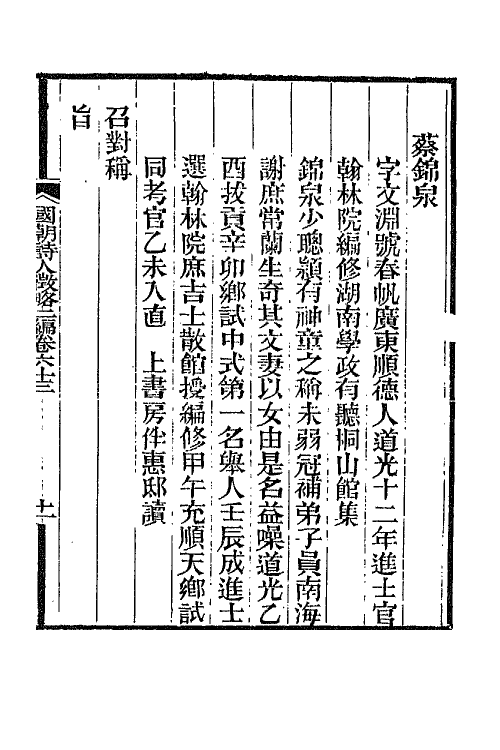 蔡錦泉
字文淵號春帆廣東順德人道光十二年進士官
翰林院編修湖南學政有聽桐山館集
錦泉少聰穎有神童之稱未弱冠補弟子員南海
謝庶常蘭生奇其文妻以女由是名益噪道光乙
酉拔貢辛卯鄉試中式第一名舉人壬辰成進士
選翰林院庶吉士散館授編修甲午充順天鄉試
同考官乙未入直　上書房侍惠邸讀
召對稱
旨
國朝詩人徵略二編卷六十三
十一